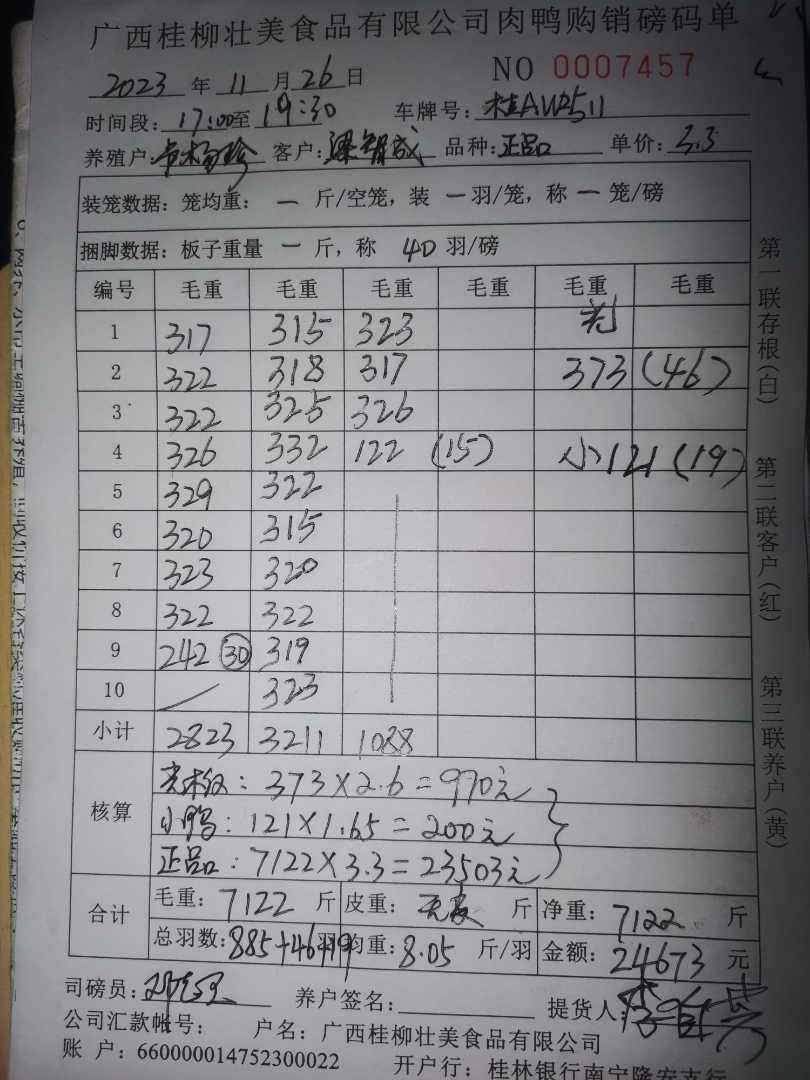 广西桂柳壮美食品有限公司肉鸭购销磅码单
2023 年 11 月 26 日 NO 0007457
时间段: 17:00至 19:30 车牌号:
养殖户: 客户: 品种: 正品 单价: 3.3
装笼数据: 笼均重: 一 斤/空笼, 装 一 羽/笼, 称 一 笼/磅
捆脚数据: 板子重量 一 斤, 称 40 羽/磅
编号 毛重 毛重 毛重 毛重 毛重 毛重
1 317 315 323
2 322 318 317 373 (46)
3 322 325 326
4 326 332 122 (15) 小 121 (19)
5 329 322
6 320 315
7 323 320
8 322 322
9 242 30 319
10 323
小计 2823 3211 1088
核算
373×2.6=970元
小鸭: 121×1.65=200元
正品: 7122×3.3=23503元
合计
毛重: 7122 斤 皮重: 斤 净重: 7122 斤
总羽数: 885+46+19 羽 均重: 8.05 斤/羽 金额: 24673 元
司磅员: 养户签名: 提货人:
公司汇款帐号: 户名: 广西桂柳壮美食品有限公司
账 户: 660000014752300022 开户行: 桂林银行南宁隆安支行
第一联存根(白) 第二联客户(红) 第三联养户(黄)